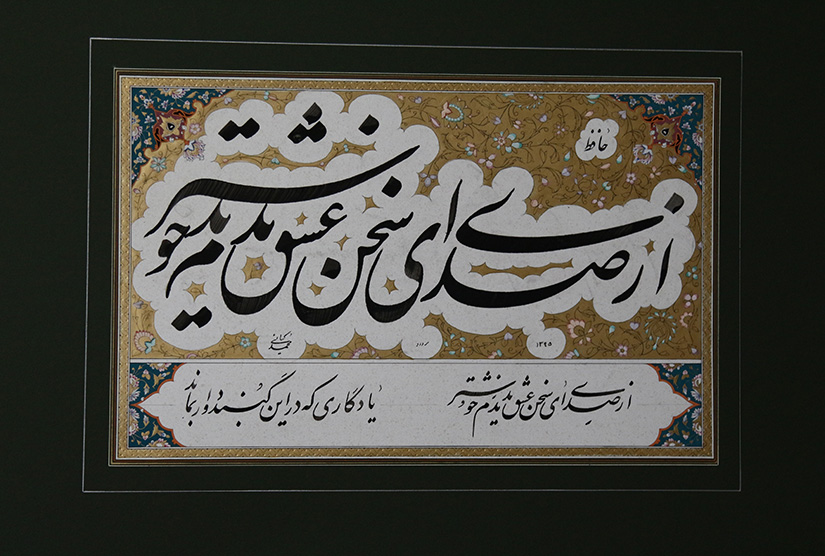 حافظ
از صدای سخن عشق ندیدم خوشتر
۱۳۹۵
از صدای سخن عشق ندیدم خوشتر
یادگاری که در این گنبد دوار بماند